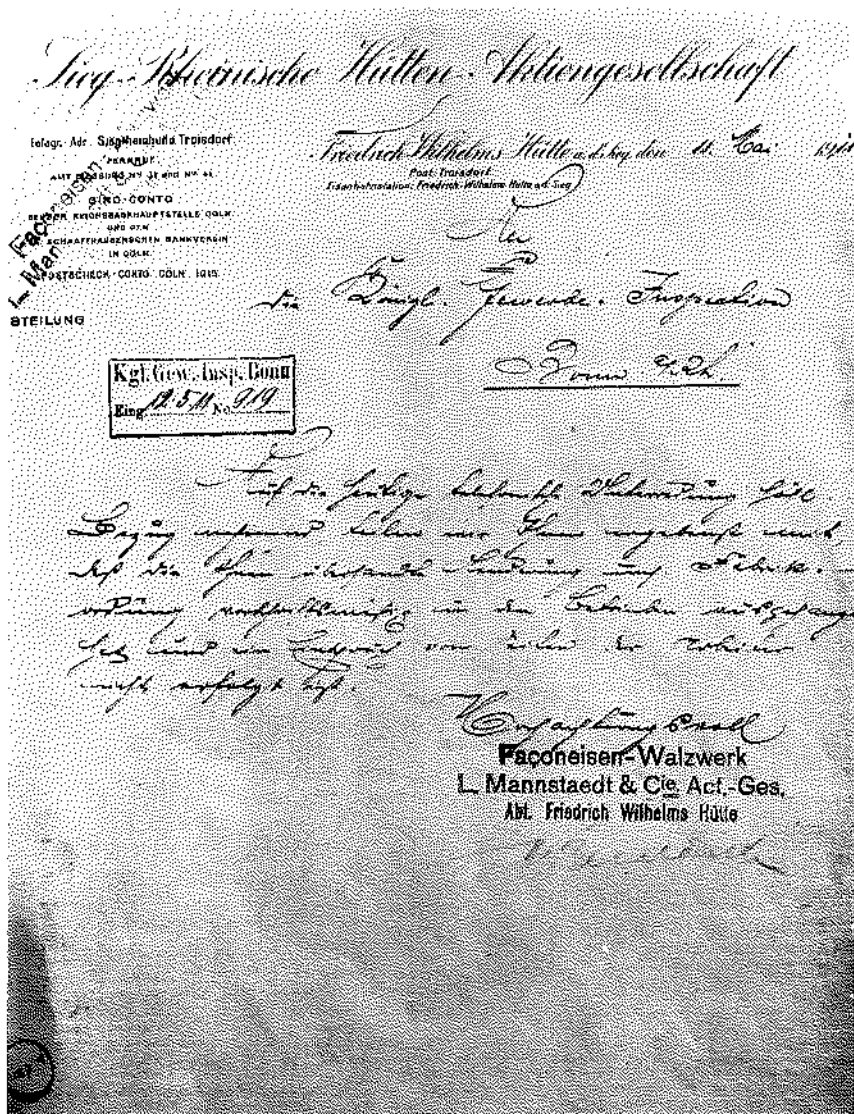 Sieg-Rheinische Hütten-Aktiengesellschaft
Telegr. Adr. Siegrheinhütte Troisdorf
FERNRUF:
AMT SIEGBURG Nº
GIRO-CONTO
BEI DER REICHSBANKHAUPTSTELLE CÖLN
UND DEM
SCHAAFFHAUSENSCHEN BANKVEREIN
IN CÖLN.
POSTSCHECK-CONTO CÖLN 1015
Façoneisen-
L. Man
BTEILUNG
Friedrich Wilhelms Hütte a.d. Sieg, den 11. Mai 1911
Post: Troisdorf
Eisenbahnstation: Friedrich-Wilhelms-Hütte a.d. Sieg
An
die Königl. Gewerbe-Inspection
Bonn a/Rh.
Kgl. Gew.-Insp. Bonn
Eing. 12.5.11 No. 919
Auf die heutige telefonische Unterredung höfl.
Bezug nehmend teilen wir Ihnen ergebenst mit,
daß die Ihnen übersandte Änderung zur Fabrik-
ordnung vorschriftsmäßig in den Betrieben ausgehangen
hat und ein Einspruch von Seiten der Arbeiter
nicht erfolgt ist.
Hochachtungsvoll
Façoneisen-Walzwerk
L. Mannstaedt & Cie. Act.-Ges.
Abt. Friedrich Wilhelms Hütte